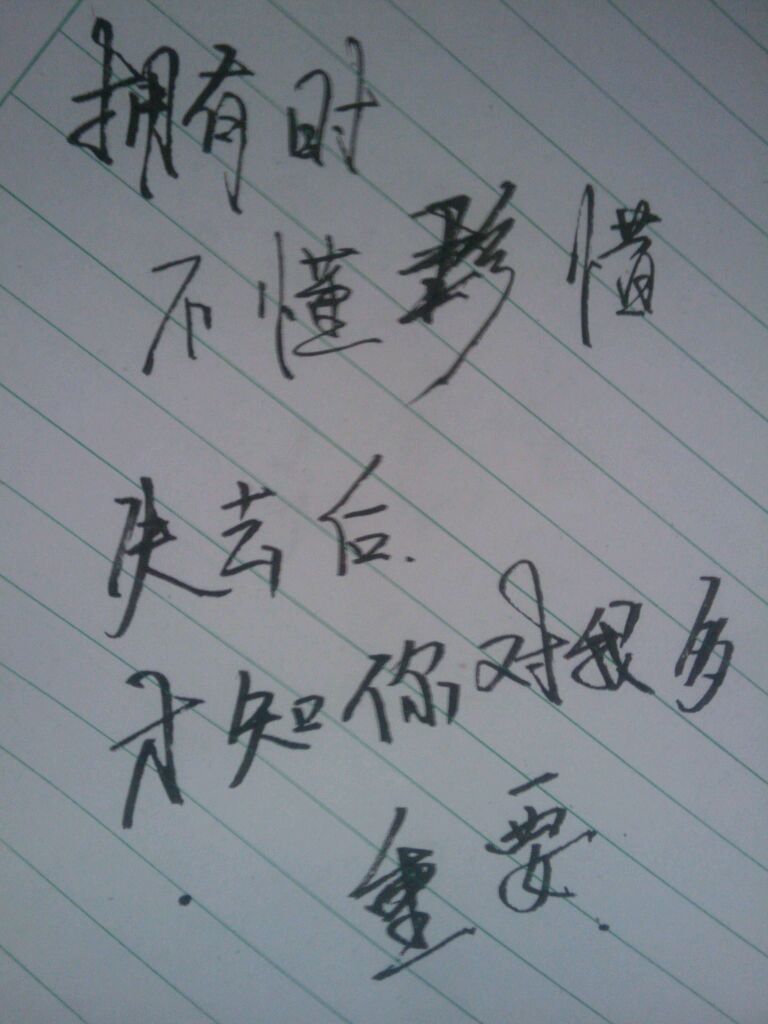 拥有时
不懂珍惜
失去后.
才知你对我多
重要.